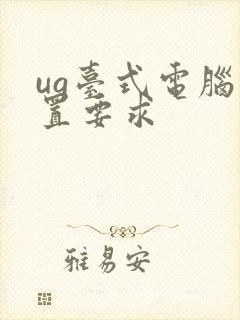 ug臺式電腦
置要求
雅易安